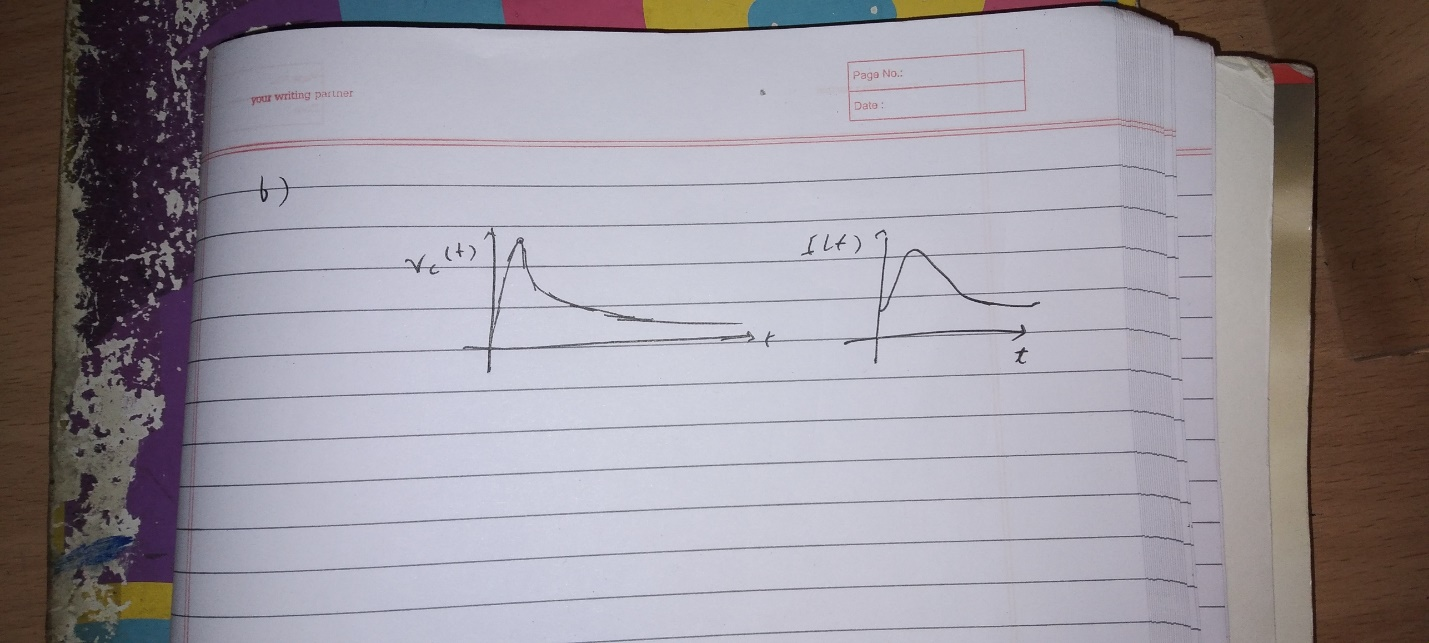 your writing partner
Page No.:
Date :
b)
Vc(t)
I(t)
t
t